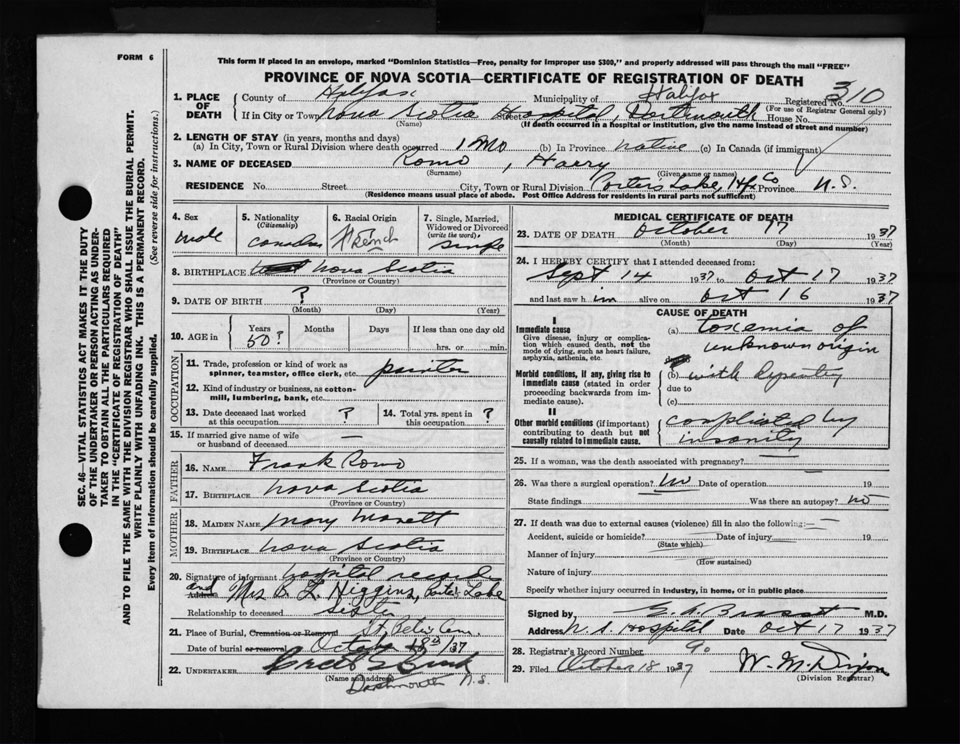 FORM 6
This form if placed in an envelope, marked "Dominion Statistics—Free, penalty for improper use $300," and properly addressed will pass through the mail "FREE"
PROVINCE OF NOVA SCOTIA—CERTIFICATE OF REGISTRATION OF DEATH
SEC. 46—VITAL STATISTICS ACT MAKES IT THE DUTY
OF THE UNDERTAKER OR PERSON ACTING AS UNDER-
TAKER TO OBTAIN ALL THE PARTICULARS REQUIRED
IN THE "CERTIFICATE OF REGISTRATION OF DEATH"
AND TO FILE THE SAME WITH THE DIVISION REGISTRAR WHO SHALL ISSUE THE BURIAL PERMIT.
WRITE PLAINLY WITH UNFADING INK. THIS IS A PERMANENT RECORD.
Every item of information should be carefully supplied. (See reverse side for instructions.)
1. PLACE OF DEATH County of Halifax Municipality of Halifax Registered No. 310
(For use of Registrar General only)
If in City or Town Nova Scotia Street Hospital, Dartmouth House No.
(Name) (If death occurred in a hospital or institution, give the name instead of street and number)
2. LENGTH OF STAY (in years, months and days)
(a) In City, Town or Rural Division where death occurred 1 Mo (b) In Province native (c) In Canada (if immigrant)
3. NAME OF DECEASED Romo, Harry
(Surname) (Given name or names)
RESIDENCE No. Street City, Town or Rural Division Porters Lake, Hfx Co Province N.S.
(Residence means usual place of abode. Post Office Address for residents in rural parts not sufficient)
4. Sex male
5. Nationality (Citizenship)
6. Racial Origin French
7. Single, Married, Widowed or Divorced (write the word)
8. BIRTHPLACE Nova Scotia
(Province or Country)
9. DATE OF BIRTH ?
(Month) (Day) (Year)
10. AGE in Years 50? Months Days If less than one day old hrs. or min.
OCCUPATION
11. Trade, profession or kind of work as spinner, teamster, office clerk, etc. painter
12. Kind of industry or business, as cotton-mill, lumbering, bank, etc.
13. Date deceased last worked at this occupation ? 14. Total yrs. spent in this occupation ?
15. If married give name of wife or husband of deceased —
FATHER
16. NAME Frank Romo
17. BIRTHPLACE Nova Scotia
(Province or Country)
MOTHER
18. MAIDEN NAME Mary
19. BIRTHPLACE Nova Scotia
(Province or Country)
20. Signature of informant hospital records
Address and Mrs Higgins, Porters Lake
Relationship to deceased sister
21. Place of Burial, Cremation or Removal St.
Date of burial or removal October 18th/37
22. UNDERTAKER
(Name and address)
Dartmouth N.S.
MEDICAL CERTIFICATE OF DEATH
23. DATE OF DEATH October 17 1937
(Month) (Day) (Year)
24. I HEREBY CERTIFY that I attended deceased from:
Sept 14 1937 to Oct 17 1937
and last saw h im alive on Oct 16 1937
CAUSE OF DEATH
I
Immediate cause
Give disease, injury or complication which caused death, not the mode of dying, such as heart failure, asphyxia, asthenia, etc.
(a) toxemia of
unknown origin
Morbid conditions, if any, giving rise to immediate cause (stated in order proceeding backwards from immediate cause).
(b) with
due to
(c)
II
Other morbid conditions (if important) contributing to death but not causally related to immediate cause.
complicated by
insanity
25. If a woman, was the death associated with pregnancy? —
26. Was there a surgical operation? No Date of operation 19
State findings Was there an autopsy? no
27. If death was due to external causes (violence) fill in also the following:—
Accident, suicide or homicide? Date of injury 19
(State which)
Manner of injury
(How sustained)
Nature of injury
Specify whether injury occurred in industry, in home, or in public place
Signed by M.D.
Address N.S. Hospital Date Oct 17 1937
28. Registrar's Record Number 90
29. Filed October 18 1937 W. M. Dixon
(Division Registrar)